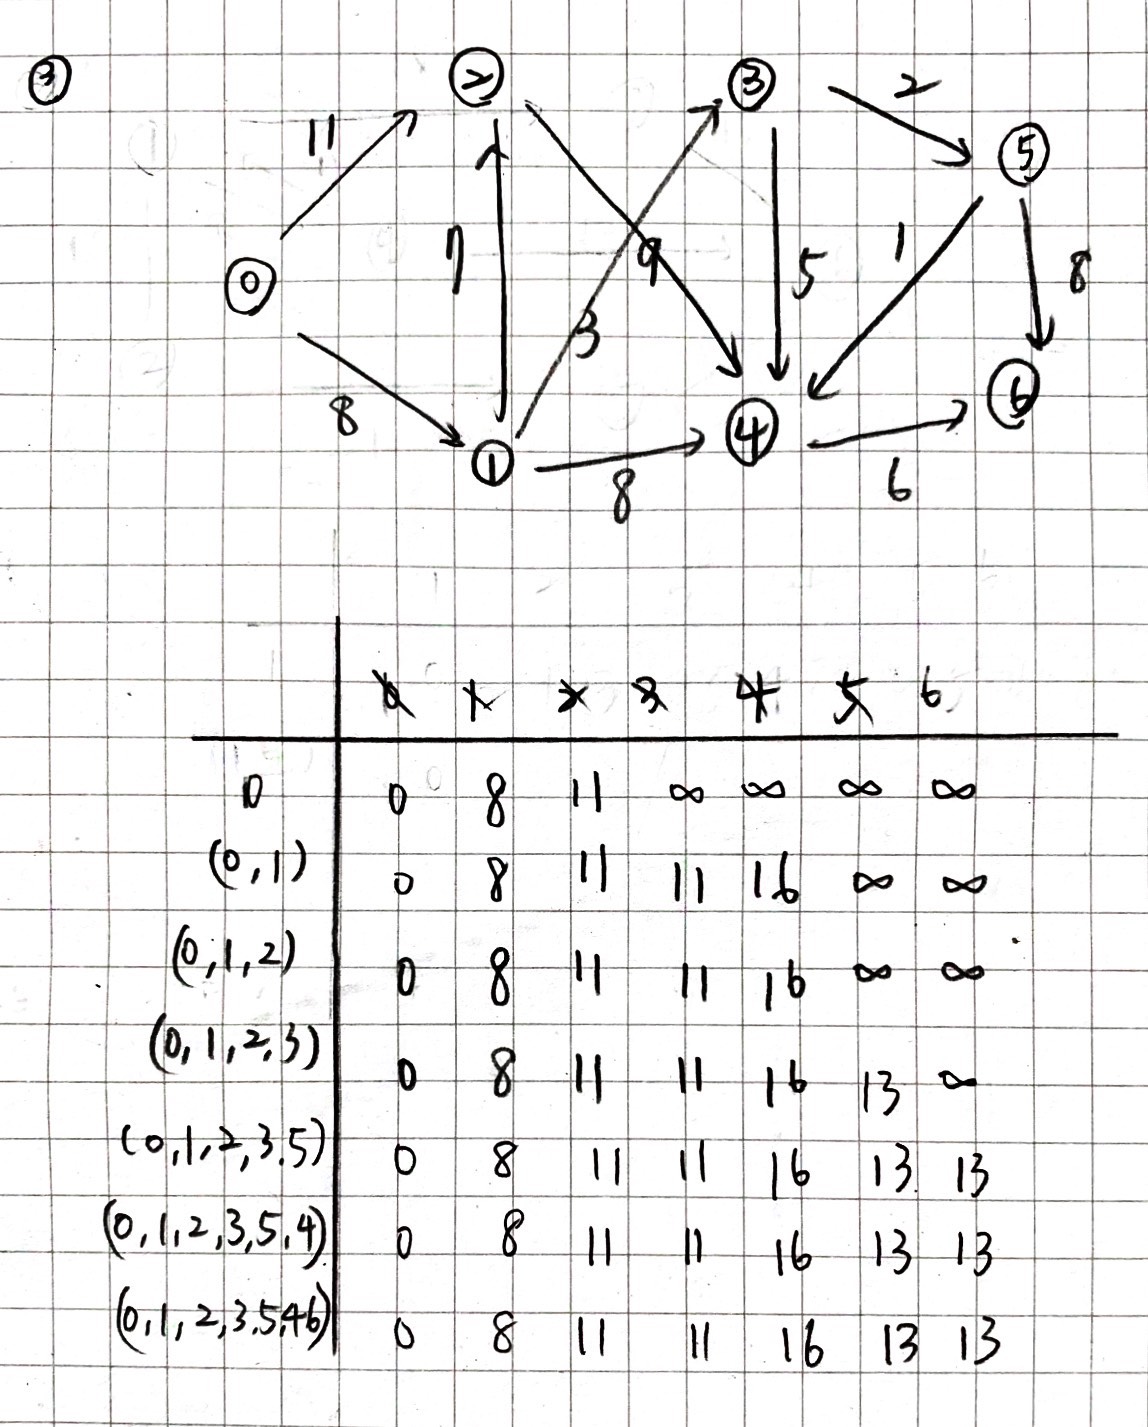 ③
② ③ 2
11 ⑤
7 9 5 1 8
⓪
3
8 ④ ⑥
① 8 6
0 1 2 3 4 5 6
0 0 8 11 ∞ ∞ ∞ ∞
(0,1) 0 8 11 11 16 ∞ ∞
(0,1,2) 0 8 11 11 16 ∞ ∞
(0,1,2,3) 0 8 11 11 16 13 ∞
(0,1,2,3.5) 0 8 11 11 16 13 13
(0,1,2,3,5,4) 0 8 11 11 16 13 13
(0,1,2,3,5,46) 0 8 11 11 16 13 13